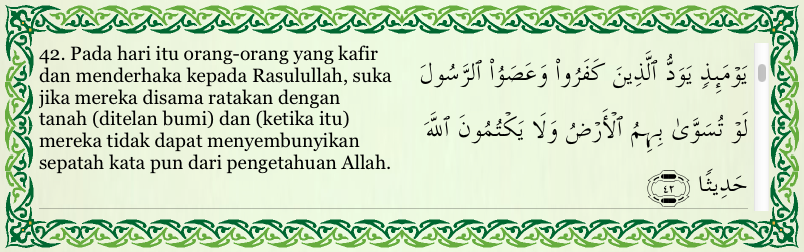 42. Pada hari itu orang-orang yang kafir
dan menderhaka kepada Rasulullah, suka
jika mereka disama ratakan dengan
tanah (ditelan bumi) dan (ketika itu)
mereka tidak dapat menyembunyikan
sepatah kata pun dari pengetahuan Allah.
يَوْمَئِذٍۢ يَوَدُّ ٱلَّذِينَ كَفَرُوا۟ وَعَصَوُا۟ ٱلرَّسُولَ
لَوْ تُسَوَّىٰ بِهِمُ ٱلْأَرْضُ وَلَا يَكْتُمُونَ ٱللَّهَ
حَدِيثًۭا ٤٢